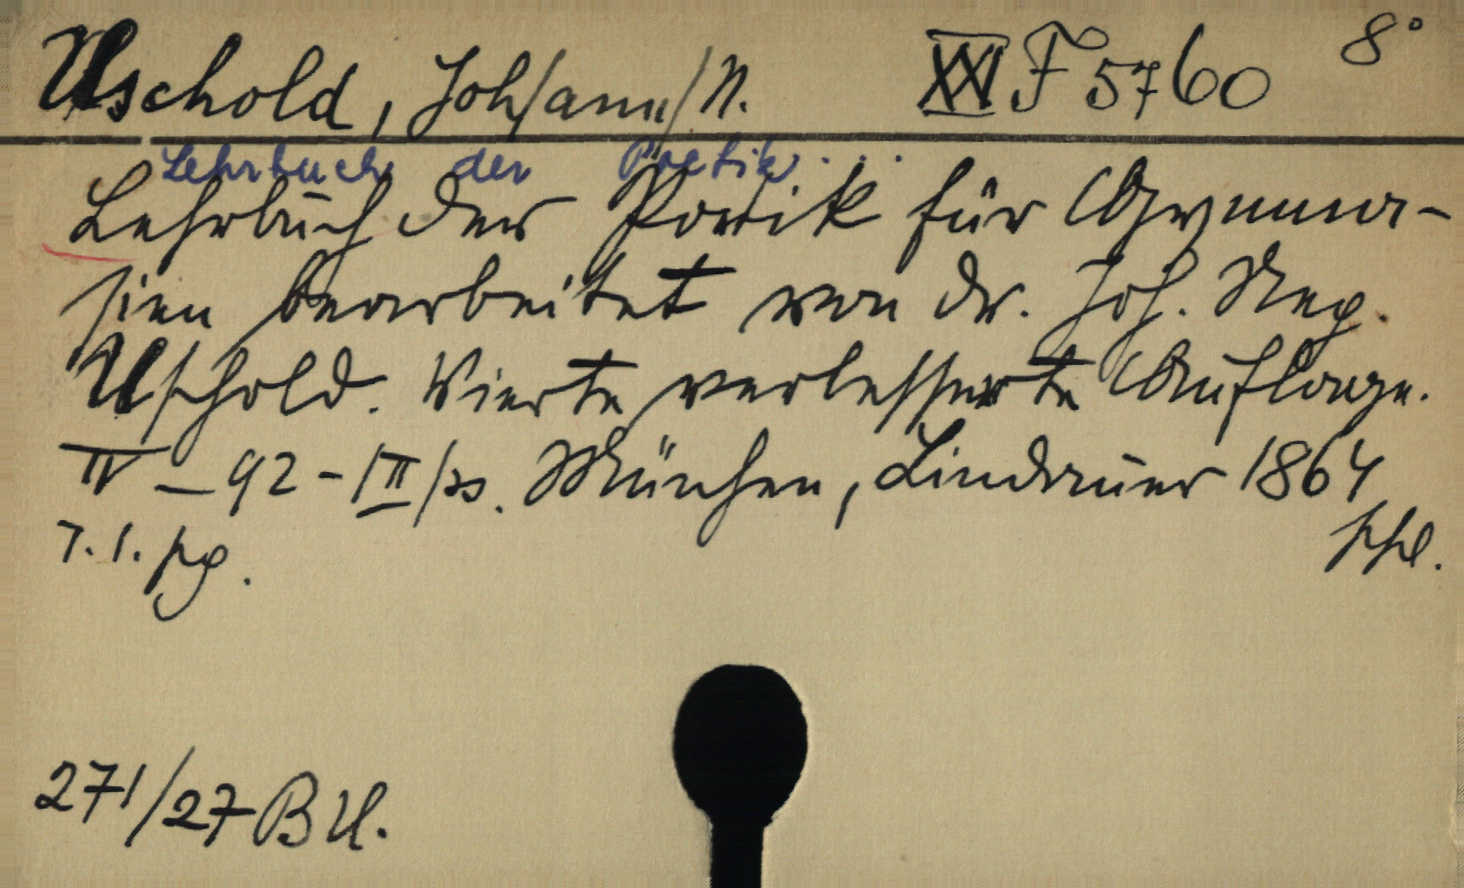 Uschold, Joh/ann/N. XXI F 5760 8°
Lehrbuch der Poetik...
Lehrbuch der Poetik für Gymna-
sien bearbeitet von Dr. Joh. Nep.
Uschold. Vierte verbesserte Auflage.
IV - 92 - III/ss. München, Lindauer 1864
7.1. pg.
271/27 B U.